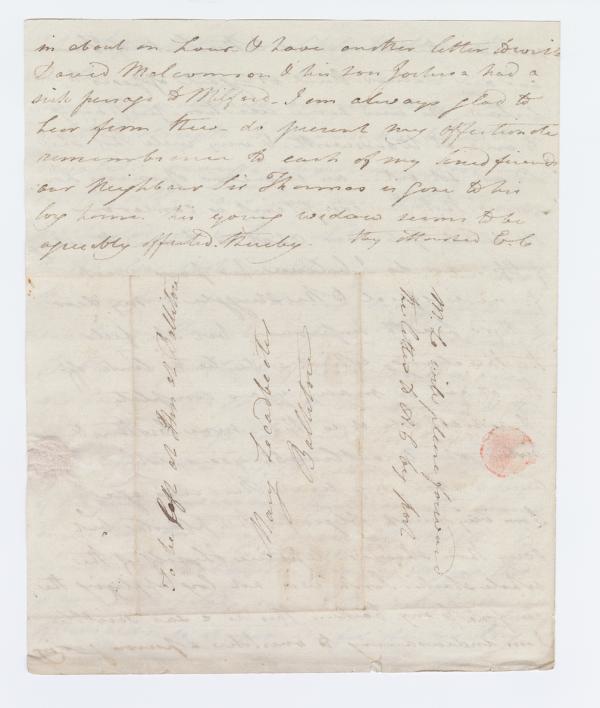 in about an hour & have another letter to write
David Malcomson & his son Joshua had a
sick passage to Milford. I am always glad to
hear from thee - do present my affectionate
remembrance to each of my kind friends
our Neighbour Sir Thomas is gone to his
long home. his young widow seems to be
agreeably affected thereby. thy attached E.C
M. L. will please forward
the letter to A. C by post
Mary Leadbeater
Ballitore
To be left at Flim at Ballitore